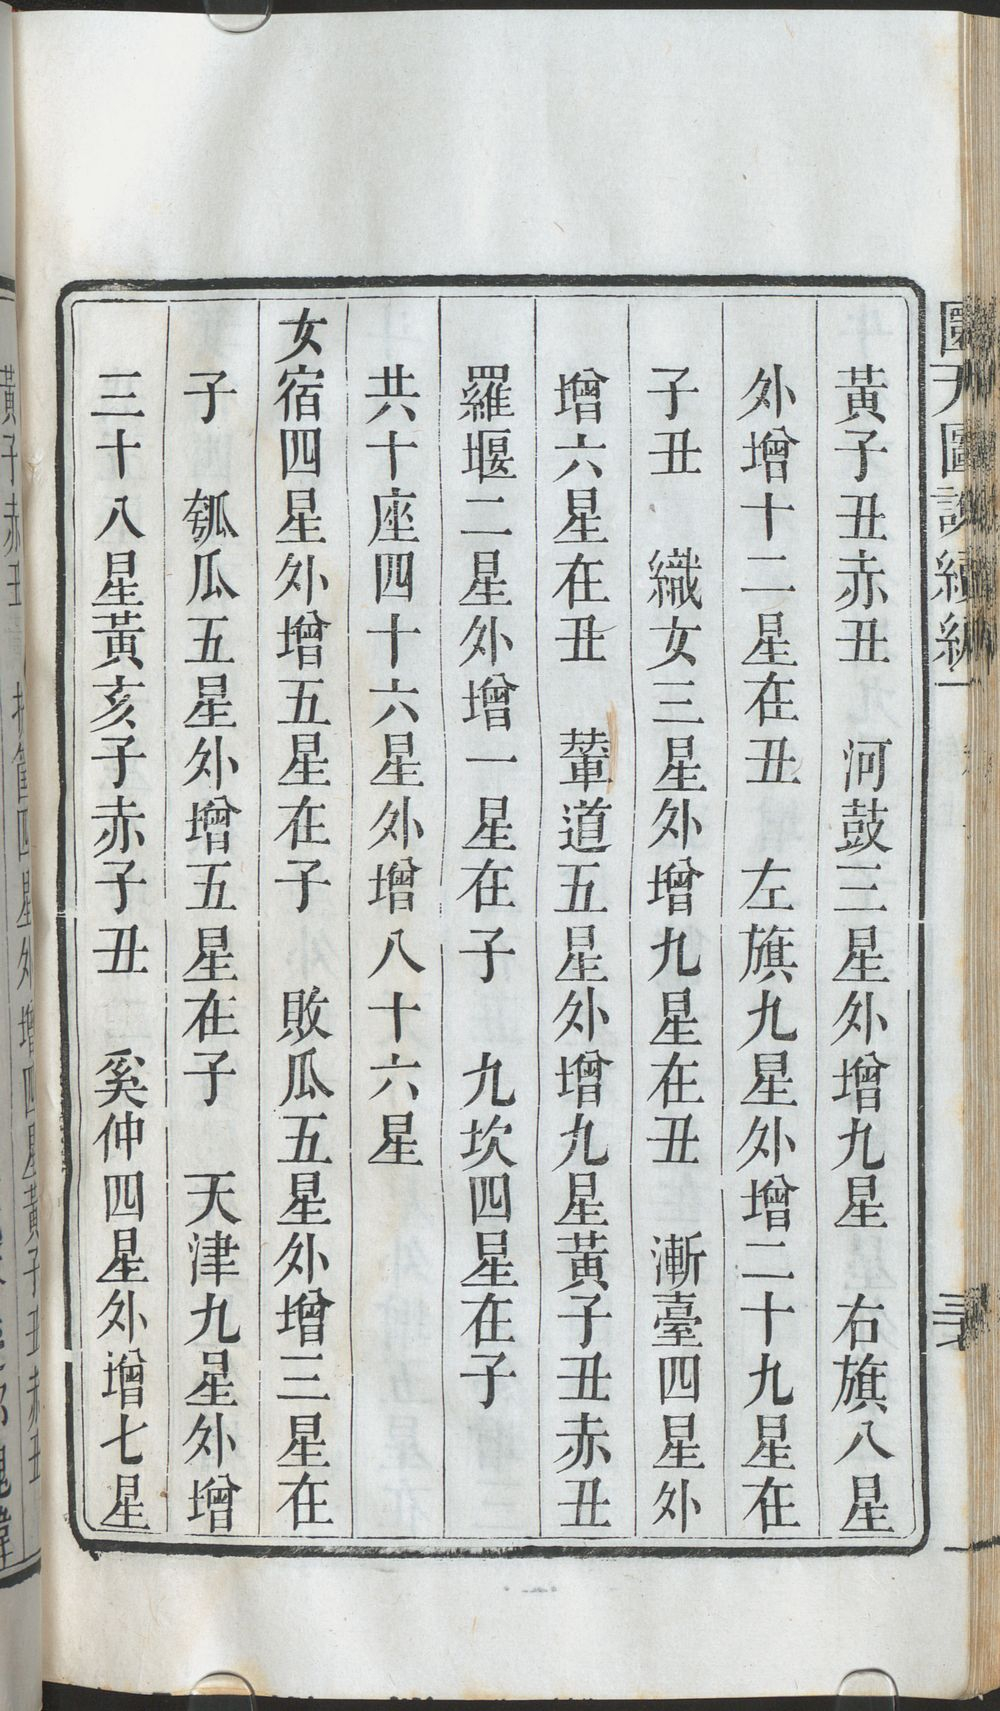 黃子丑赤丑　河鼓三星外增九星　右旗八星
外增十二星在丑　左旗九星外增二十九星在
子丑　織女三星外增九星在丑　漸臺四星外
增六星在丑　輦道五星外增九星黃子丑赤丑
羅堰二星外增一星在子　九坎四星在子
共十座四十六星外增八十六星
女宿四星外增五星在子　敗瓜五星外增三星在
子　瓠瓜五星外增五星在子　天津九星外增
三十八星黃亥子赤子丑　奚仲四星外增七星